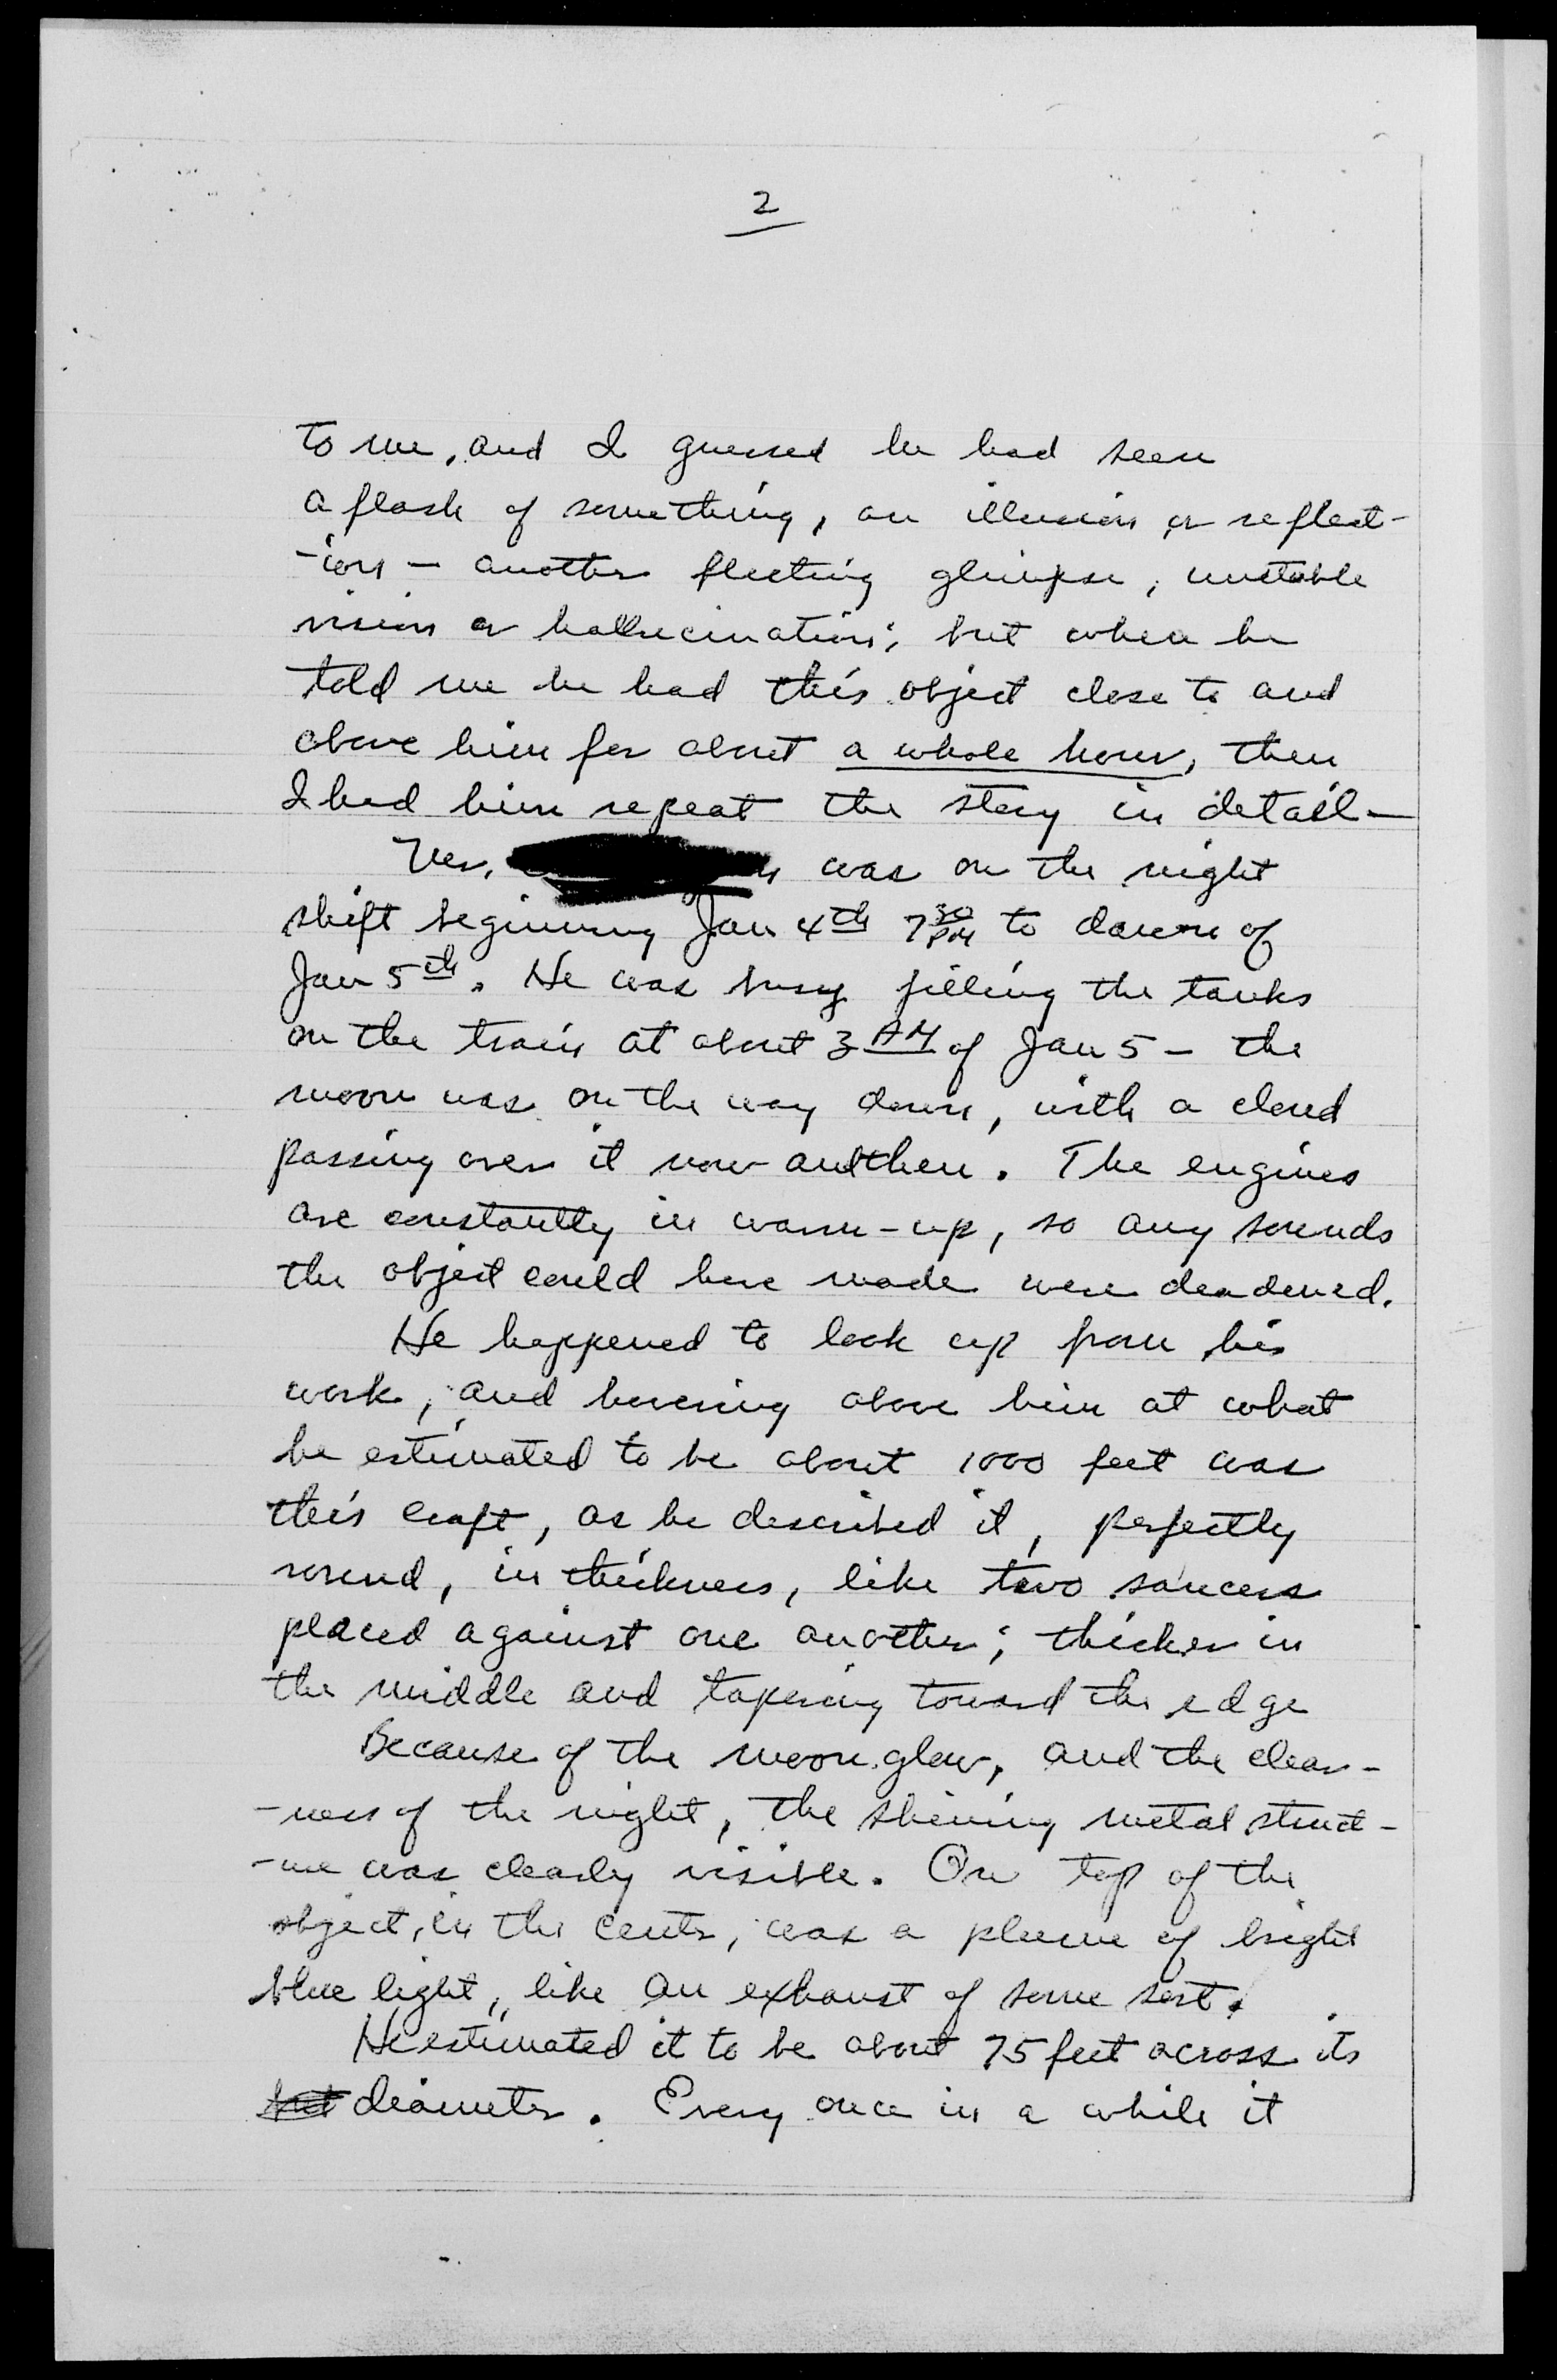 2
to me, and I guessed he had seen
a flash of something, an illusion or reflect-
-ion — another fleeting glimpse, unstable
vision or hallucination; but when he
told me he had this object close to and
above him for about a whole hour, then
I had him repeat the story in detail —
was on the night
shift beginning Jan 4th 7 30 PM to dawn of
Jan 5th. He was busy filling the tanks
on the train at about 3 AM of Jan 5 — the
moon was on the way down, with a cloud
passing over it now and then. The engines
are constantly in warm-up, so any sounds
the object could have made were deadened.
He happened to look up from his
work, and hovering above him at what
he estimated to be about 1000 feet was
this craft, as he described it, perfectly
round, in thickness, like two saucers
placed against one another; thicker in
the middle and tapering toward the edge
Because of the moon glow, and the clear-
-ness of the night, the shining metal struct-
-ure was clearly visible. On top of the
object, in the center, was a plume of bright
blue light, like an exhaust of some sort.
He estimated it to be about 75 feet across its
diameter. Every once in a while it